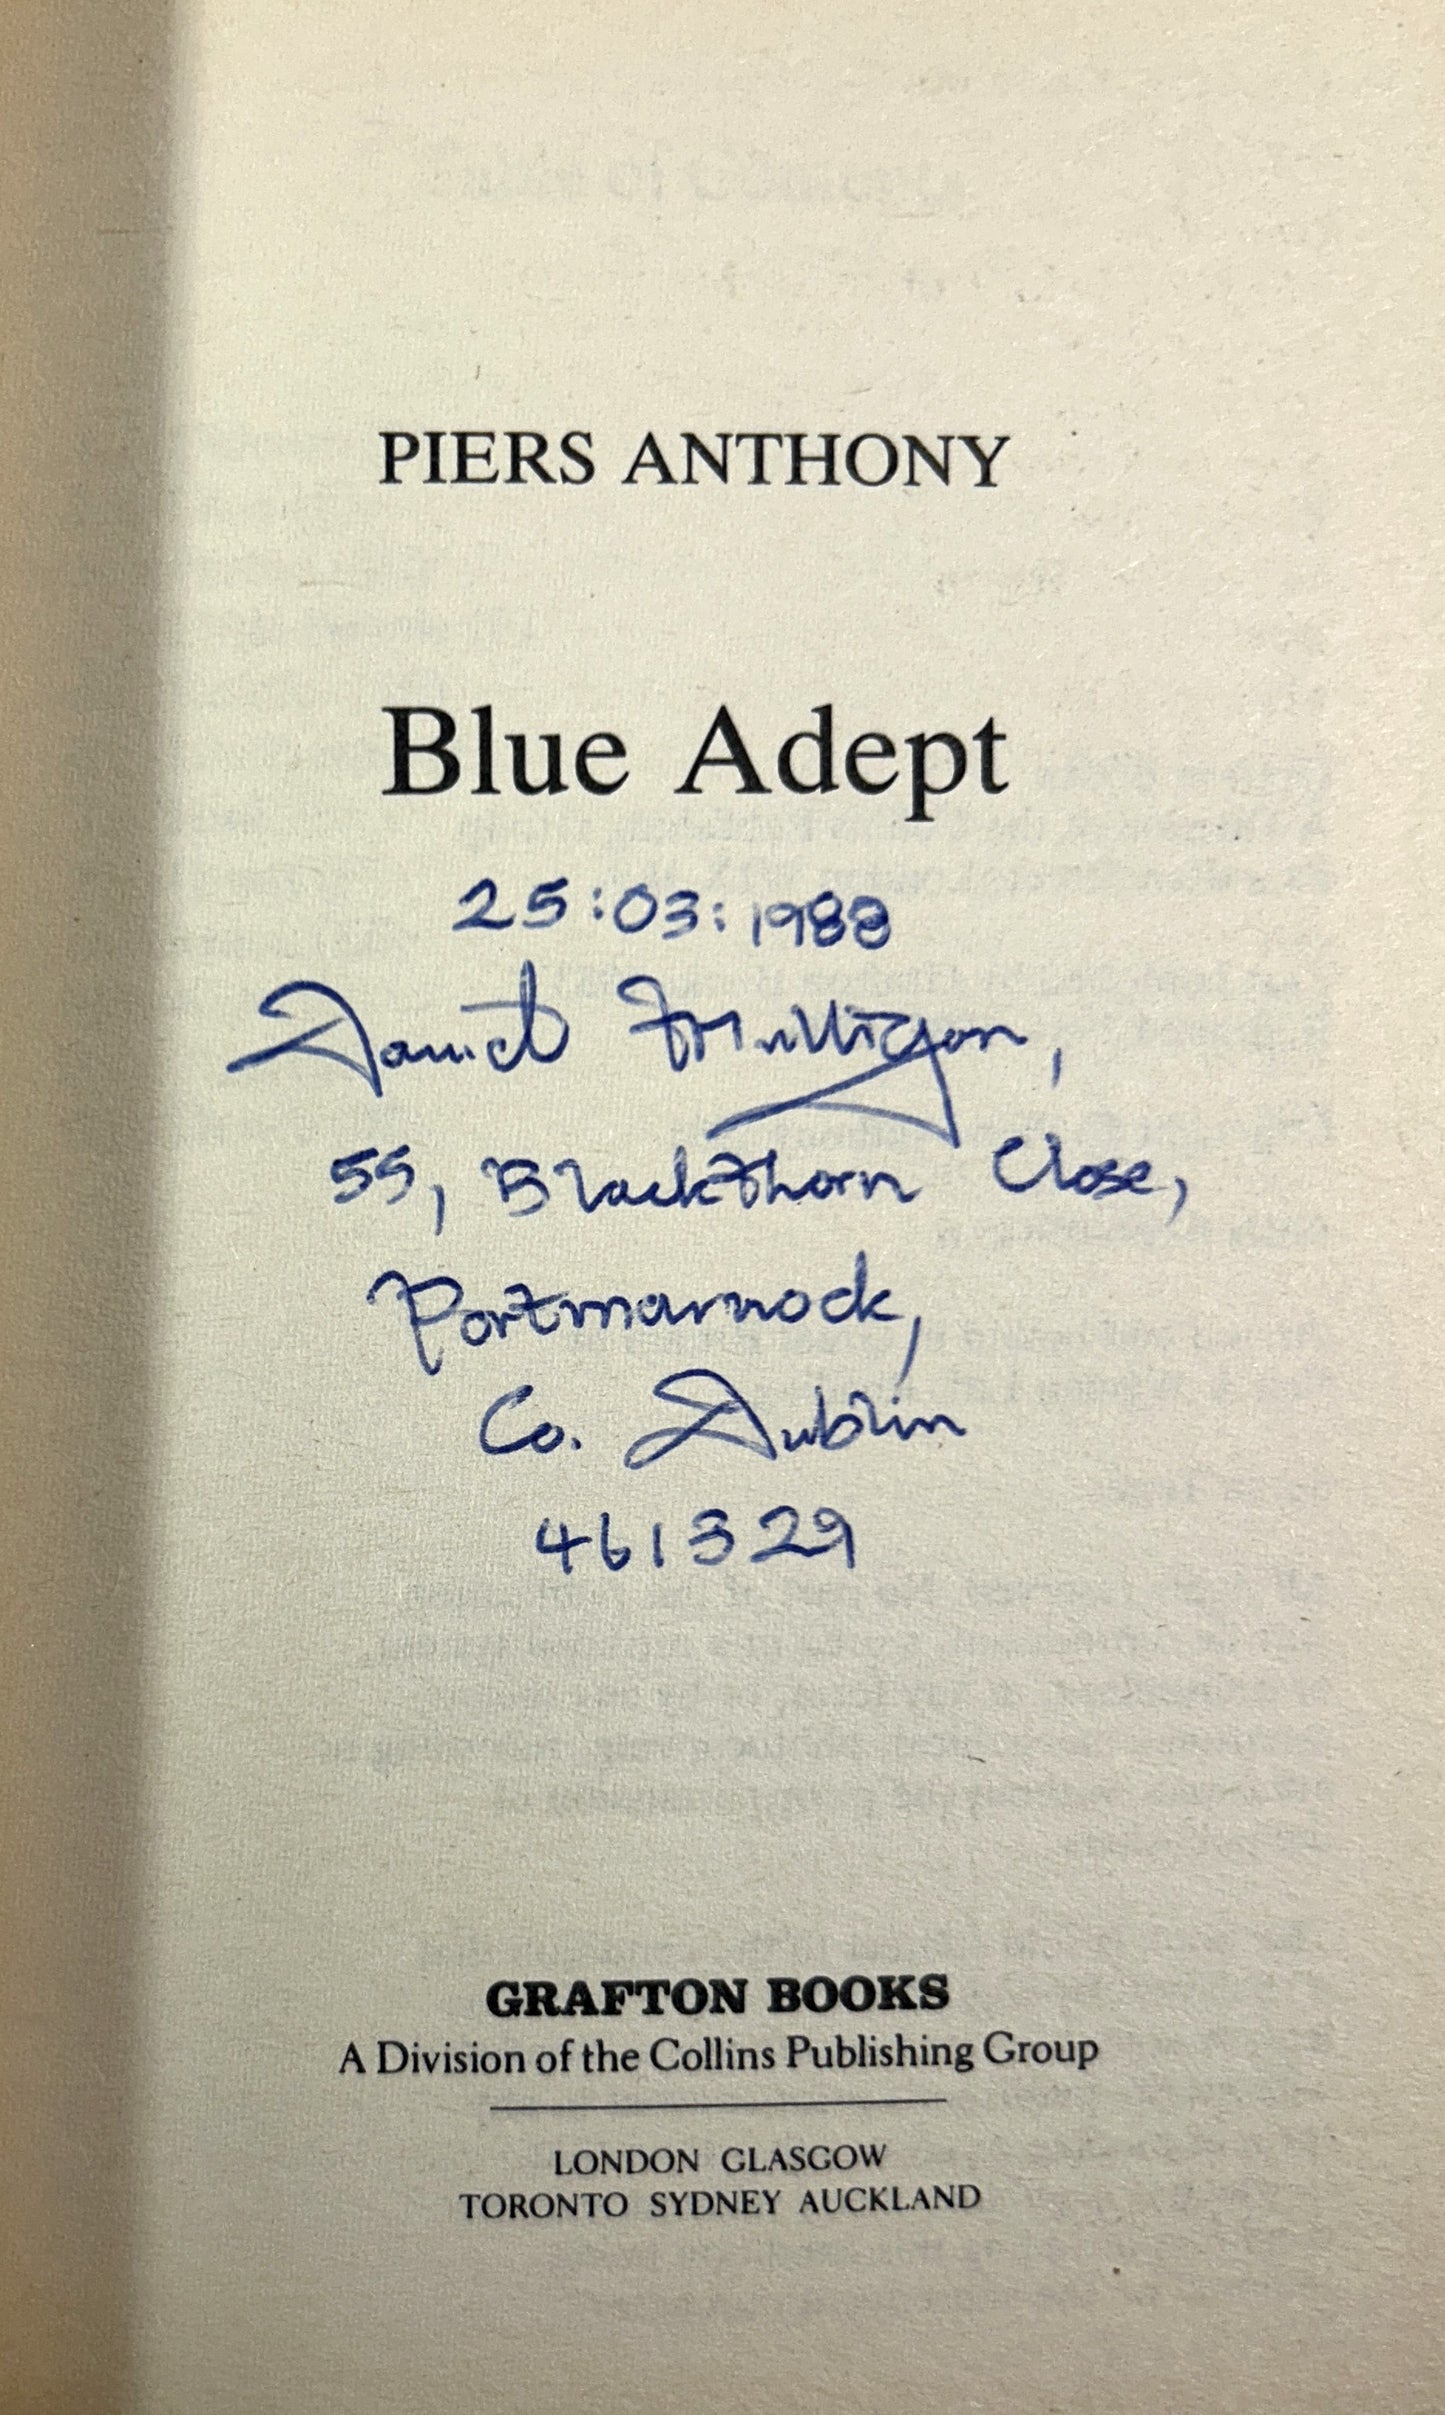 PIERS ANTHONY
Blue Adept
25:03:1988
Daniel Mulligan,
55, Blackthorn Close,
Portmarnock,
Co. Dublin
461329
GRAFTON BOOKS
A Division of the Collins Publishing Group
LONDON GLASGOW
TORONTO SYDNEY AUCKLAND